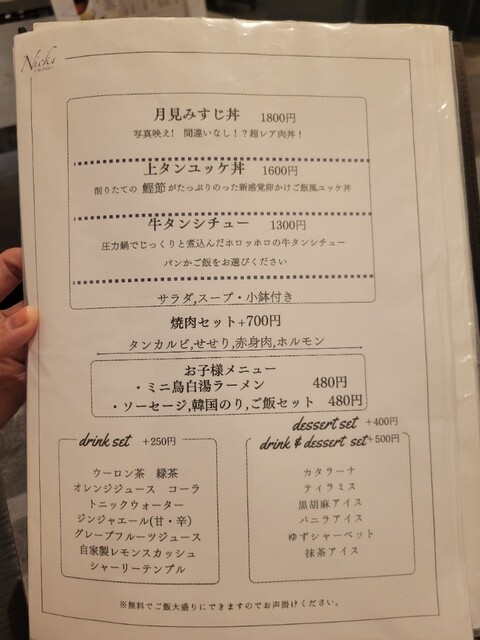 Nicki
月見みすじ丼 1800円
写真映え! 間違いなし!?超レア肉丼!
上タンユッケ丼 1600円
削りたての 鰹節 がたっぷりのった新感覚卵かけご飯風ユッケ丼
牛タンシチュー 1300円
圧力鍋でじっくりと煮込んだホロッホロの牛タンシチュー
パンかご飯をお選びください
サラダ,スープ・小鉢付き
焼肉セット+700円
タンカルビ,せせり,赤身肉,ホルモン
お子様メニュー
・ミニ鳥白湯ラーメン 480円
・ソーセージ,韓国のり,ご飯セット 480円
dessert set +400円
drink & dessert set+500円
drink set +250円
ウーロン茶 緑茶
オレンジジュース コーラ
トニックウォーター
ジンジャエール(甘・辛)
グレープフルーツジュース
自家製レモンスカッシュ
シャーリーテンプル
カタラーナ
ティラミス
黒胡麻アイス
バニラアイス
ゆずシャーベット
抹茶アイス
※無料でご飯大盛りにできますのでお声掛けください。